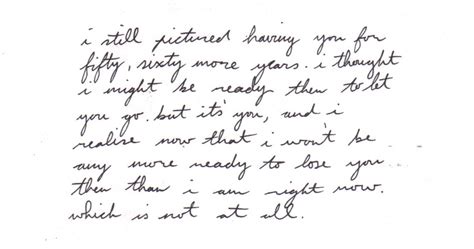 i still pictured having you for
fifty, sixty more years. i thought
i might be ready then to let
you go. but it's you, and i
realise now that i won't be
any more ready to lose you
then than i am right now.
which is not at all.